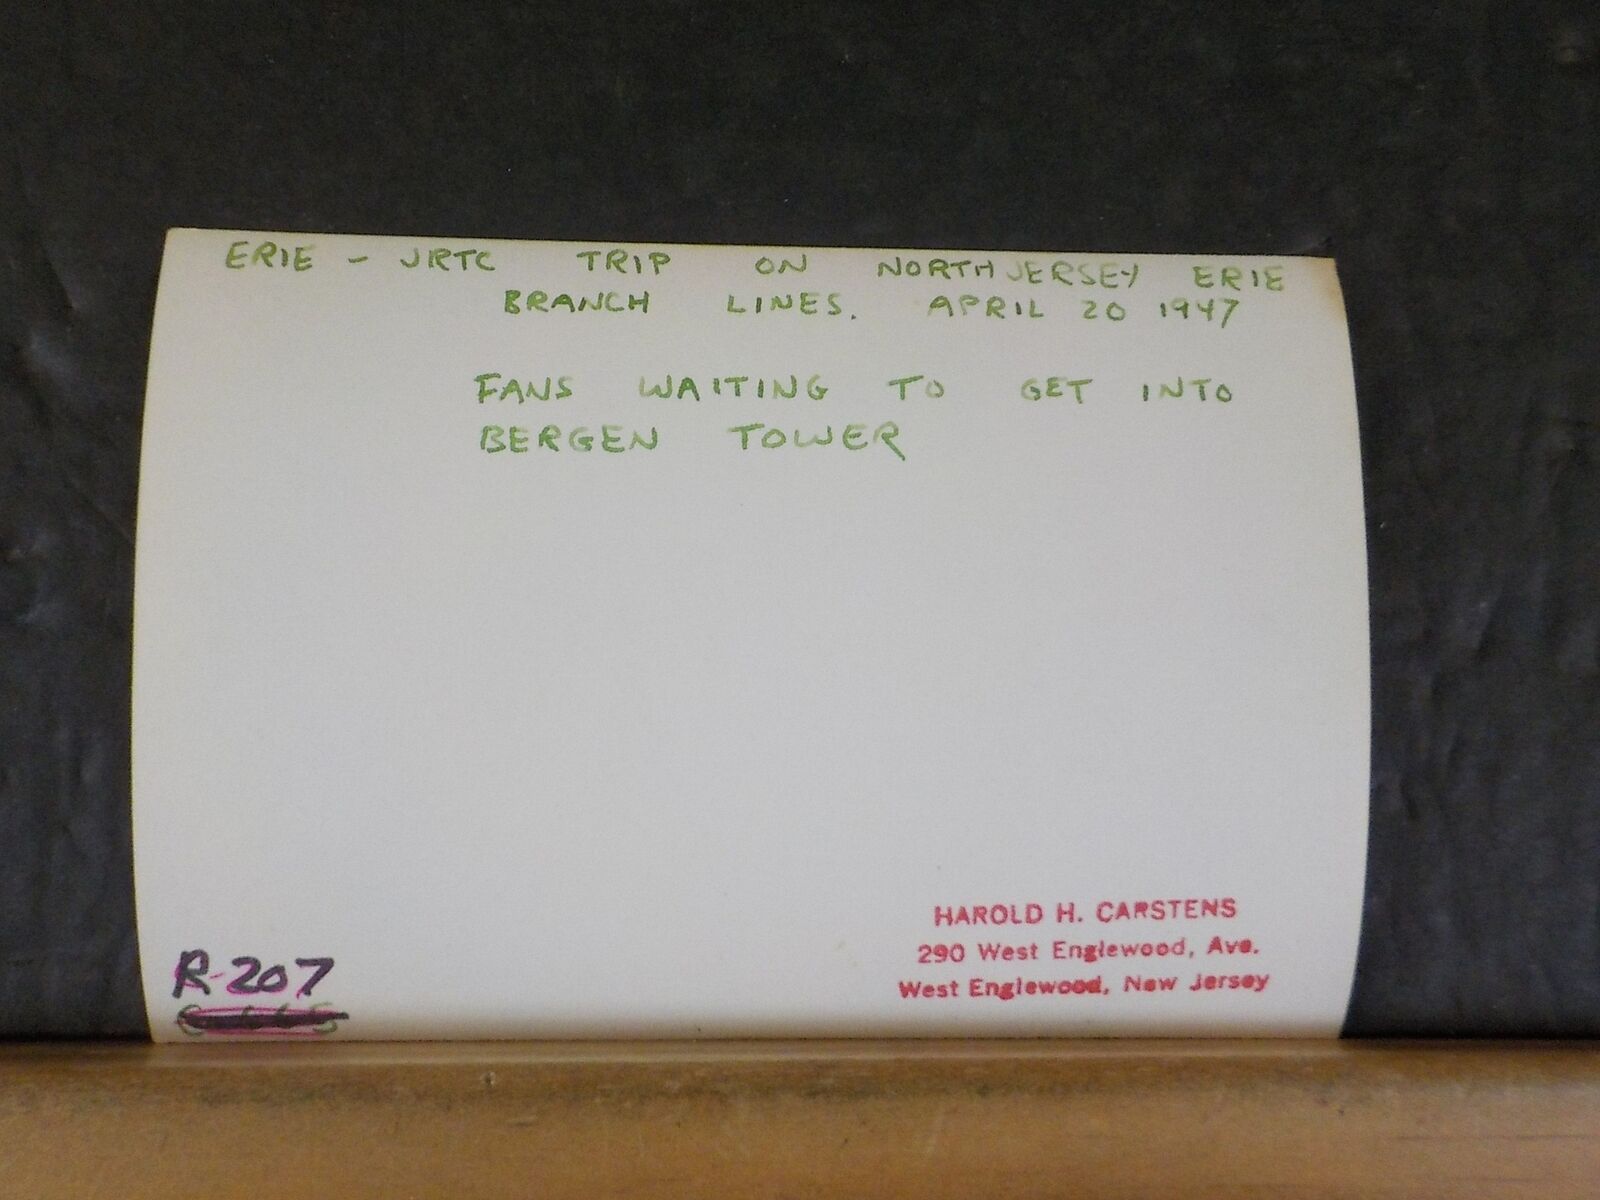 ERIE - JRTC TRIP ON NORTH JERSEY ERIE
BRANCH LINES. APRIL 20 1947
FANS WAITING TO GET INTO
BERGEN TOWER
HAROLD H. CARSTENS
290 West Englewood, Ave.
West Englewood, New Jersey
R-207